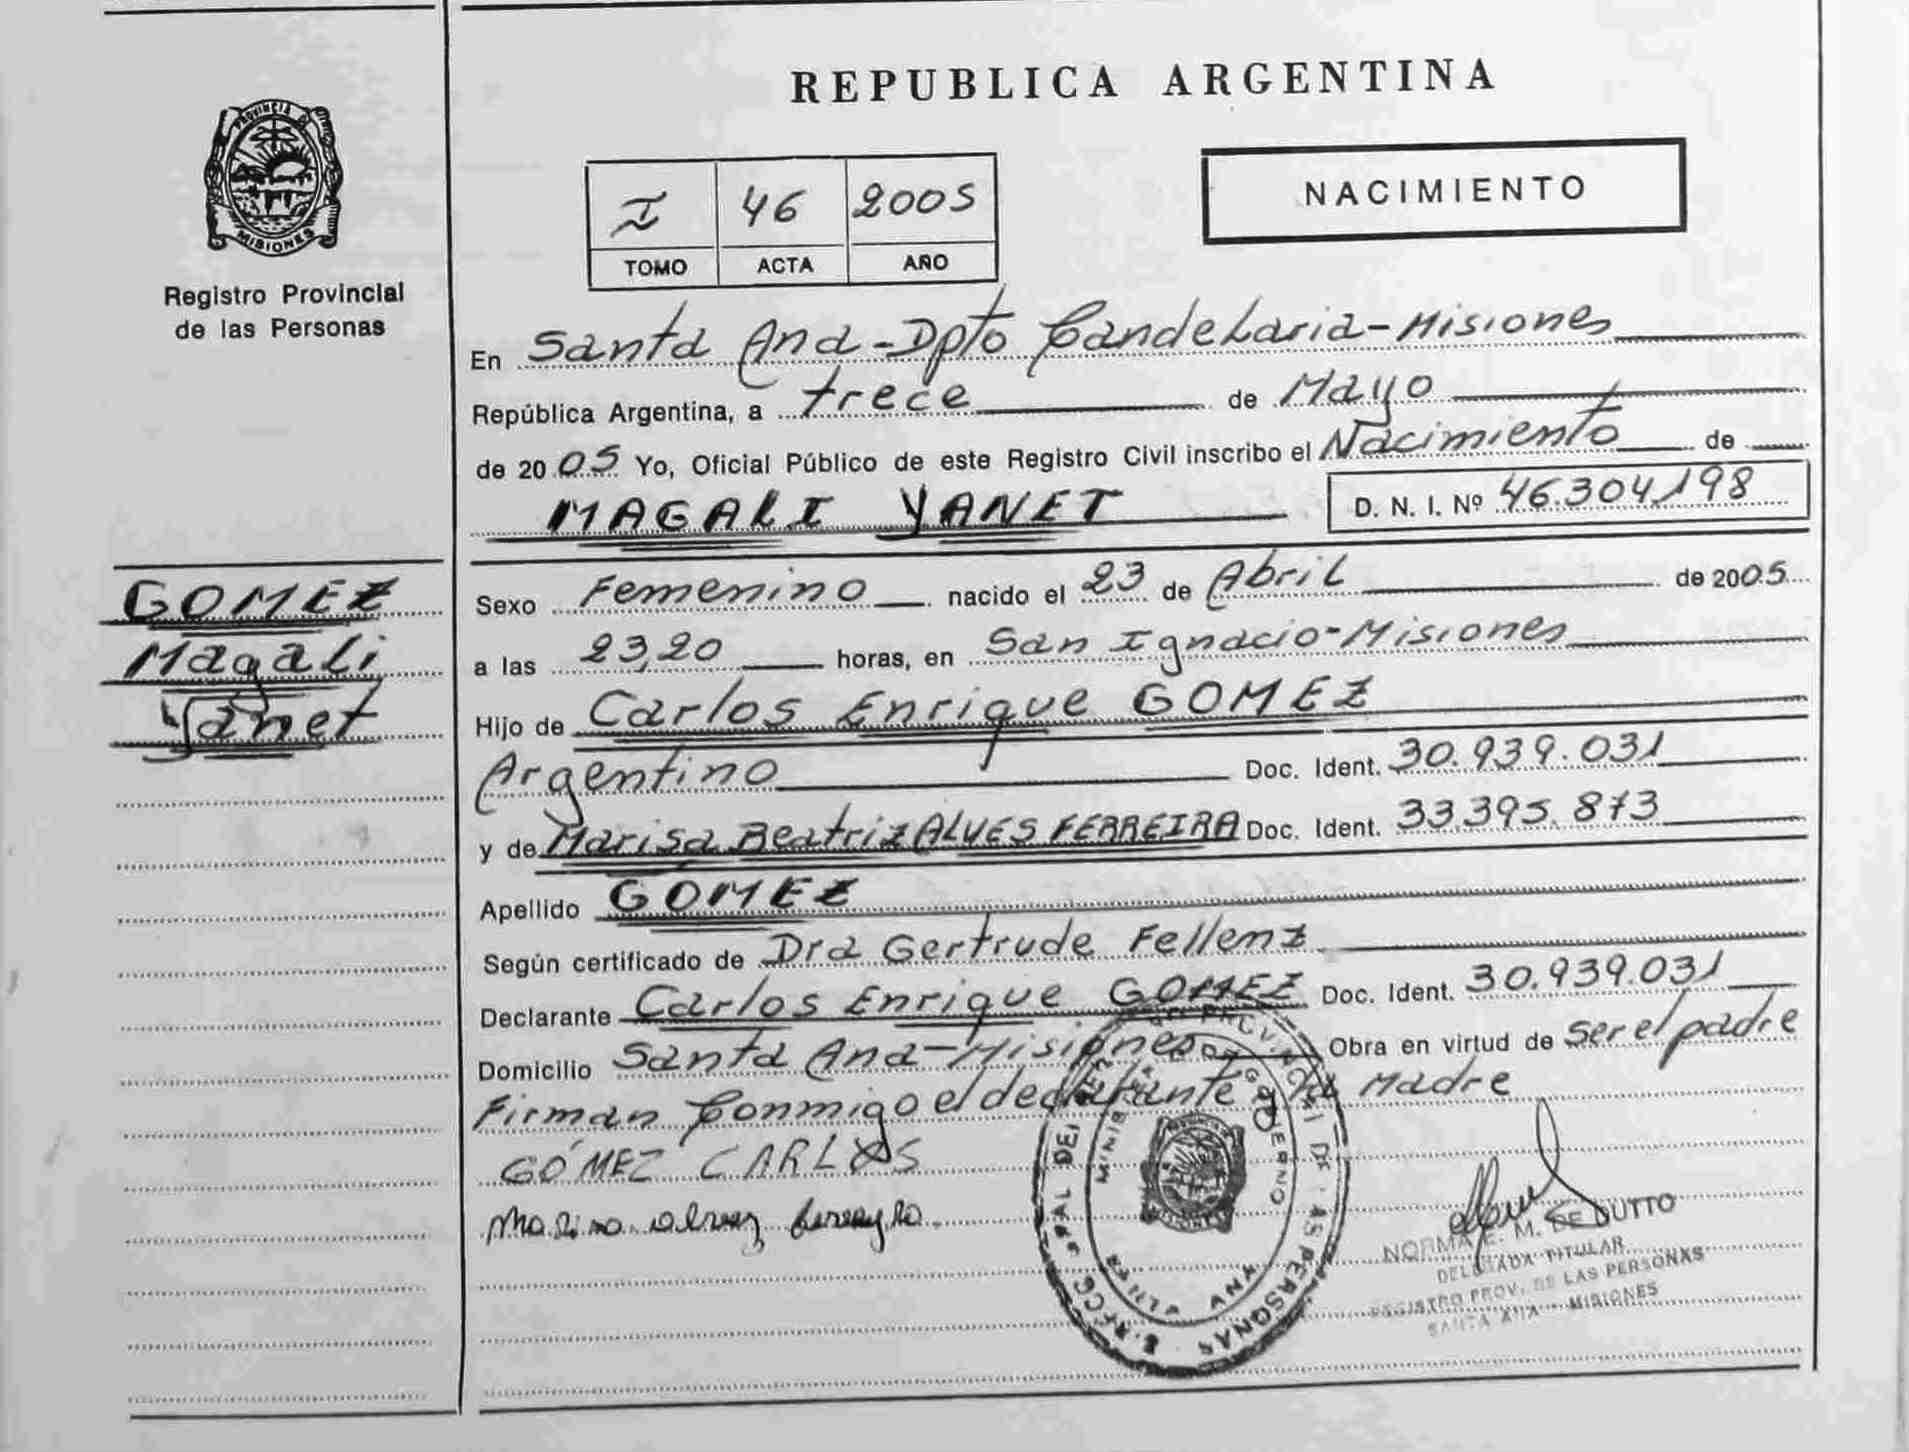 REPUBLICA ARGENTINA
PROVINCIA DE
MISIONES
Registro Provincial
de las Personas
I 46 2005
TOMO ACTA AÑO
NACIMIENTO
En Santa Ana-Dpto Candelaria-Misiones
República Argentina, a trece de Mayo
de 2005 Yo, Oficial Público de este Registro Civil inscribo el Nacimiento de
MAGALI YANET D. N. I. Nº 46.304.198
GOMEZ
Magali
Yanet
Sexo Femenino nacido el 23 de Abril de 2005
a las 23,20 horas, en San Ignacio-Misiones
Hijo de Carlos Enrique GOMEZ
Argentino Doc. Ident. 30.939.031
y de Marisa Beatriz ALVES FERREIRA Doc. Ident. 33.395.873
Apellido GOMEZ
Según certificado de Dra Gertrude Fellenz
Declarante Carlos Enrique GOMEZ Doc. Ident. 30.939.031
Domicilio Santa Ana-Misiones Obra en virtud de ser el padre
Firman Conmigo el declarante y la Madre
GÓMEZ CARLOS
NORMA E. M. DE DUTTO
DELEGADA TITULAR
REGISTRO PROV. DE LAS PERSONAS
SANTA ANA - MISIONES